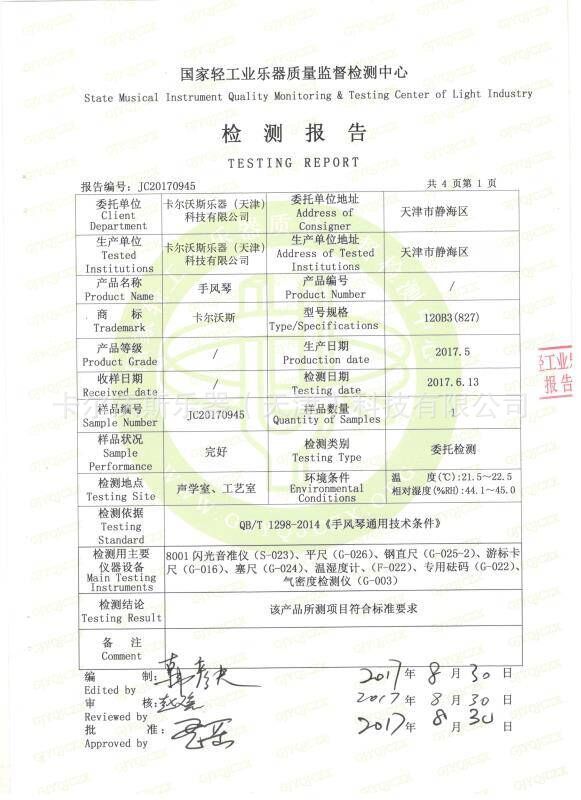 国家轻工业乐器质量监督检测中心
State Musical Instrument Quality Monitoring & Testing Center of Light Industry
检 测 报 告
TESTING REPORT
报告编号: JC20170945 共 4 页第 1 页
委托单位 Client Department 卡尔沃斯乐器（天津）科技有限公司 委托单位地址 Address of Consigner 天津市静海区
生产单位 Tested Institutions 卡尔沃斯乐器（天津）科技有限公司 生产单位地址 Address of Tested Institutions 天津市静海区
产品名称 Product Name 手风琴 产品编号 Product Number /
商 标 Trademark 卡尔沃斯 型号规格 Type/Specifications 120B3(827)
产品等级 Product Grade / 生产日期 Production date 2017.5
收样日期 Received date / 检测日期 Testing date 2017.6.13
样品编号 Sample Number JC20170945 样品数量 Quantity of Samples 1
样品状况 Sample Performance 完好 检测类别 Testing Type 委托检测
检测地点 Testing Site 声学室、工艺室 环境条件 Environmental Conditions 温 度(℃):21.5～22.5 相对湿度(%RH):44.1～45.0
检测依据 Testing Standard QB/T 1298-2014《手风琴通用技术条件》
检测用主要仪器设备 Main Testing Instruments 8001 闪光音准仪（S-023）、平尺（G-026）、钢直尺（G-025-2）、游标卡尺（G-016）、塞尺（G-024）、温湿度计、（F-022）、专用砝码（G-022）、气密度检测仪（G-003）
检测结论 Testing Result 该产品所测项目符合标准要求
备 注 Comment
编 制: 2017 年 8 月 30 日
Edited by
审 核: 2017 年 8 月 30 日
Reviewed by
批 准: 2017 年 8 月 30 日
Approved by
轻工业乐
报告
卡尔沃斯乐器（天津）科技有限公司